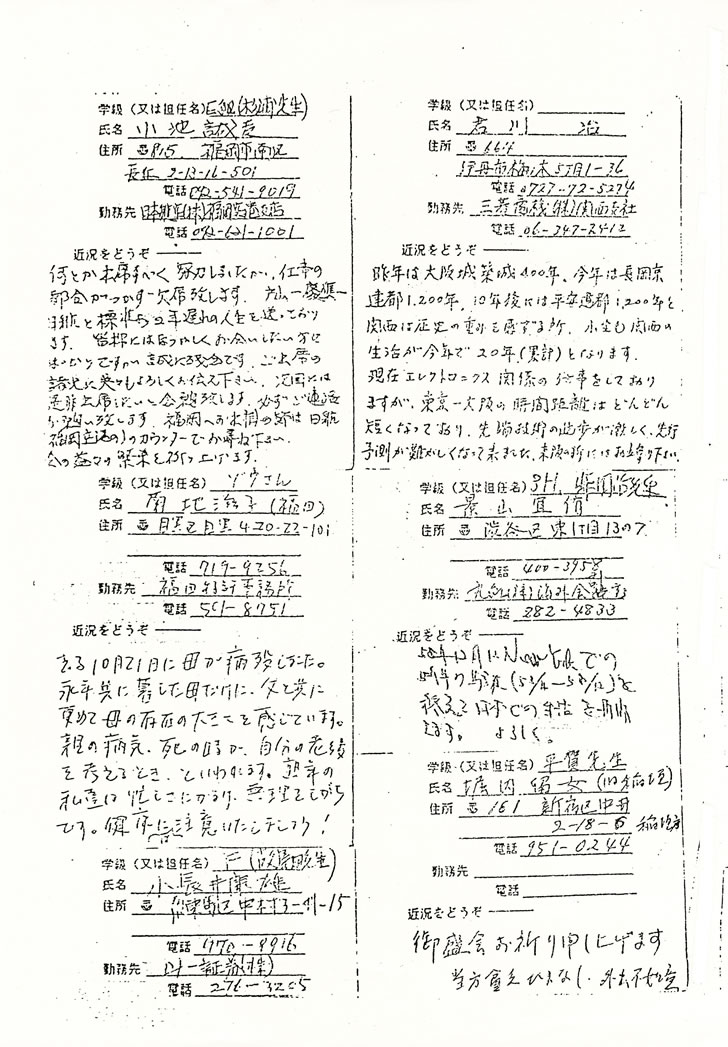 学級（又は担任名）E組(杉浦先生)
氏名 小池
住所 〒815 福岡市南区
長住 2-13-16-501
電話 092-541-9019
勤務先 日本航空(株)福岡空港支店
電話 092-621-1001
近況をどうぞ
何とか出席すべく努力しましたが、仕事の
都合がつかず欠席致します。
と標準より2年遅れの人生を送っており
ます。皆様にはなつかしくお会いしたい方
ばかりですが誠に残念です。ご出席の
諸兄に呉々もよろしくお伝え下さい。次回には
是非出席したいと念願致します。必ずご連絡
お願い致します。福岡へお越の節は日航
福岡空港のカウンターでお尋ね下さい。
会の益々の発展を祈り上げます。
学級（又は担任名）ゾウさん
氏名 菊地 (福田)
住所 〒 目黒区目黒4-20-22-101
電話 719-9256
勤務先 福田特許事務所
電話 501-8751
近況をどうぞ
さる10月21日に母が病死しました。
永年共に暮した母だけに、父と共に
改めて母の存在の大きさを感じています。
親の病気、死の時が、自分の老後
を考えるとき、といわれます。熟年の
私達は忙しさにかまけ、無理をしがち
です。健康には注意いたしましょう！
学級（又は担任名）F
氏名 小長井
住所 〒 練馬区中村3-41-15
電話 970-9916
勤務先 山一証券(株)
電話 276-3205
学級（又は担任名）
氏名 吉川 治
住所 〒664
伊丹市梅ノ木5丁目1-36
電話 0727-72-5274
勤務先 三菱商事(株)関西支社
電話 06-347-2412
近況をどうぞ
昨年は大阪城築城400年、今年は長岡京
建都1,200年、10年後には平安遷都1,200年と
関西は歴史の重みを感ずる所、小生も関西の
生活が今年で20年(累計)となります。
現在エレクトロニクス関係の仕事をしており
ますが、東京ー大阪の時間距離はどんどん
短くなっており、先端技術の進歩が激しく、先行
予測が難かしくなって来ました。来阪の折にはお立寄り下さい。
学級（又は担任名）3H
氏名 景山宜
住所 〒 渋谷区東1丁目13の7
電話 400-3958
勤務先 丸紅(株)海外金融部
電話 282-4833
近況をどうぞ
New York での
(53/12-58/12)を
終えて日本での生活を
ます。よろしく。
学級（又は担任名）平賀先生
氏名 堀内 (旧稲垣)
住所 〒161 新宿区中井
2-18-6 稲垣方
電話 951-0244
勤務先
電話
近況をどうぞ
御盛会お祈り申し上げます
当方貧乏ひまなし